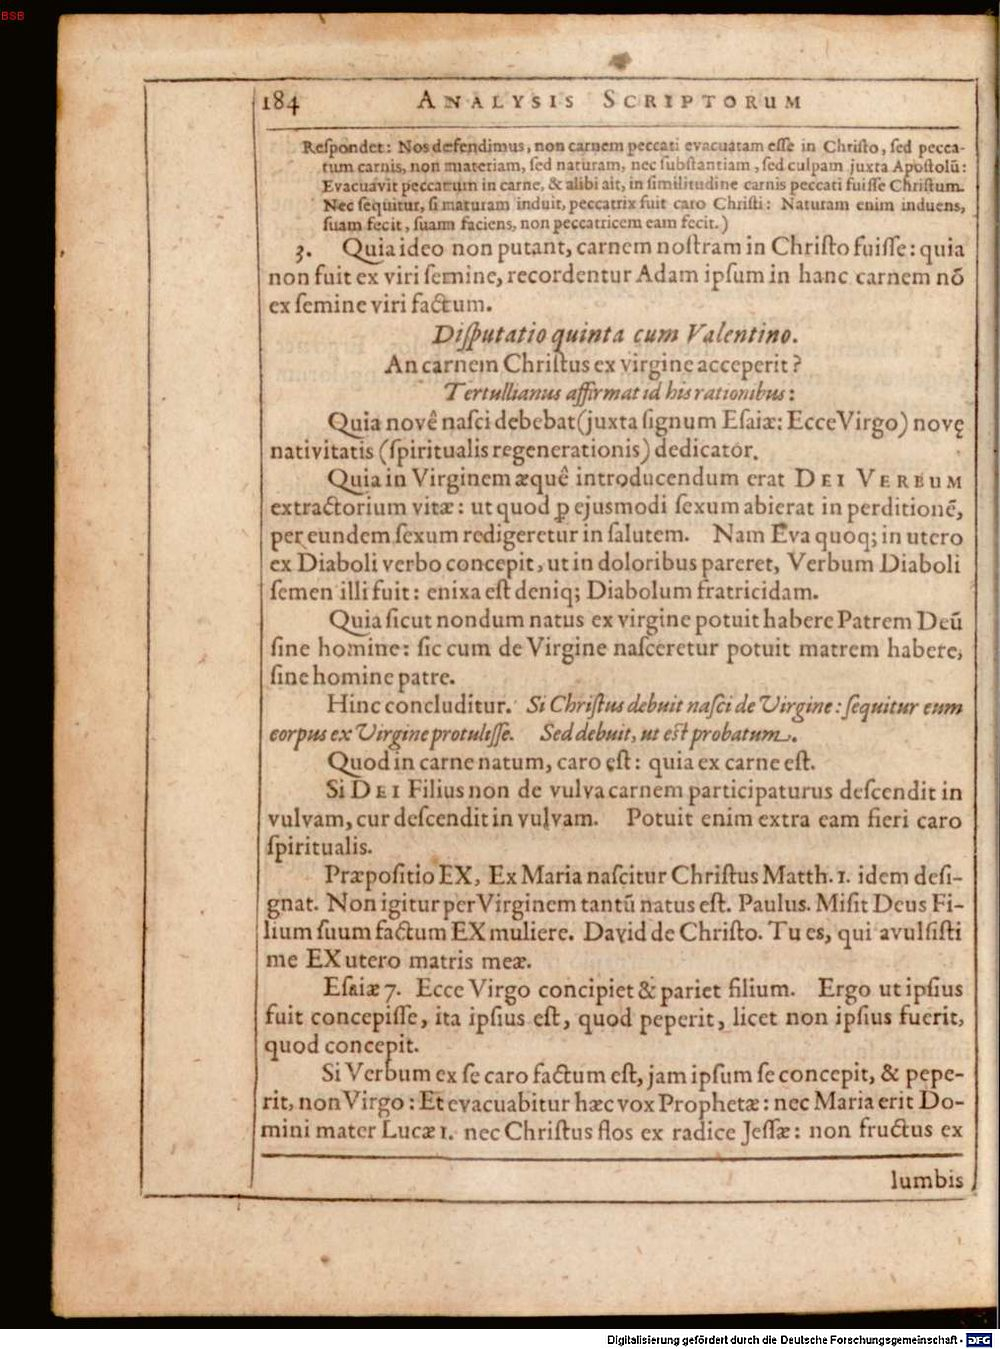 BSB
184 ANALYSIS SCRIPTORUM
Reſpondet: Nos defendimus, non carnem peccati evacuatam eſſe in Chriſto, ſed pecca-
tum carnis, non materiam, ſed naturam, nec ſubſtantiam, ſed culpam juxta Apoſtolū:
Evacuavit peccatum in carne, & alibi ait, in ſimilitudine carnis peccati fuiſſe Chriſtum.
Nec ſequitur, ſi naturam induit, peccatrix fuit caro Chriſti: Naturam enim induens,
ſuam fecit, ſuam faciens, non peccatricem eam fecit.)
3. Quia ideo non putant, carnem noſtram in Chriſto fuiſſe: quia
non fuit ex viri ſemine, recordentur Adam ipſum in hanc carnem nō
ex ſemine viri factum.
Diſputatio quinta cum Valentino.
An carnem Chriſtus ex virgine acceperit?
Tertullianus affirmat id his rationibus:
Quia novê naſci debebat (juxta ſignum Eſaiæ: Ecce Virgo) novę
nativitatis (ſpiritualis regenerationis) dedicator.
Quia in Virginem æquê introducendum erat DEI VERBUM
extractorium vitæ: ut quod ꝑ ejusmodi ſexum abierat in perditionē,
per eundem ſexum redigeretur in ſalutem. Nam Eva quoq; in utero
ex Diaboli verbo concepit, ut in doloribus pareret, Verbum Diaboli
ſemen illi fuit: enixa eſt deniq; Diabolum fratricidam.
Quia ſicut nondum natus ex virgine potuit habere Patrem Deū
ſine homine: ſic cum de Virgine naſceretur potuit matrem habere,
ſine homine patre.
Hinc concluditur. Si Chriſtus debuit naſci de Virgine: ſequitur eum
corpus ex Virgine protuliſſe. Sed debuit, ut eſt probatum.
Quod in carne natum, caro eſt: quia ex carne eſt.
Si DEI Filius non de vulva carnem participaturus deſcendit in
vulvam, cur deſcendit in vulvam. Potuit enim extra eam fieri caro
ſpiritualis.
Præpoſitio EX, Ex Maria naſcitur Chriſtus Matth. 1. idem deſi-
gnat. Non igitur per Virginem tantū natus eſt. Paulus. Miſit Deus Fi-
lium ſuum factum EX muliere. David de Chriſto. Tu es, qui avulſiſti
me EX utero matris meæ.
Eſaiæ 7. Ecce Virgo concipiet & pariet filium. Ergo ut ipſius
fuit concepiſſe, ita ipſius eſt, quod peperit, licet non ipſius fuerit,
quod concepit.
Si Verbum ex ſe caro factum eſt, jam ipſum ſe concepit, & pepe-
rit, non Virgo: Et evacuabitur hæc vox Prophetæ: nec Maria erit Do-
mini mater Lucæ 1. nec Chriſtus flos ex radice Jeſſæ: non fructus ex
lumbis
Digitalisierung gefördert durch die Deutsche Forschungsgemeinschaft - DFG